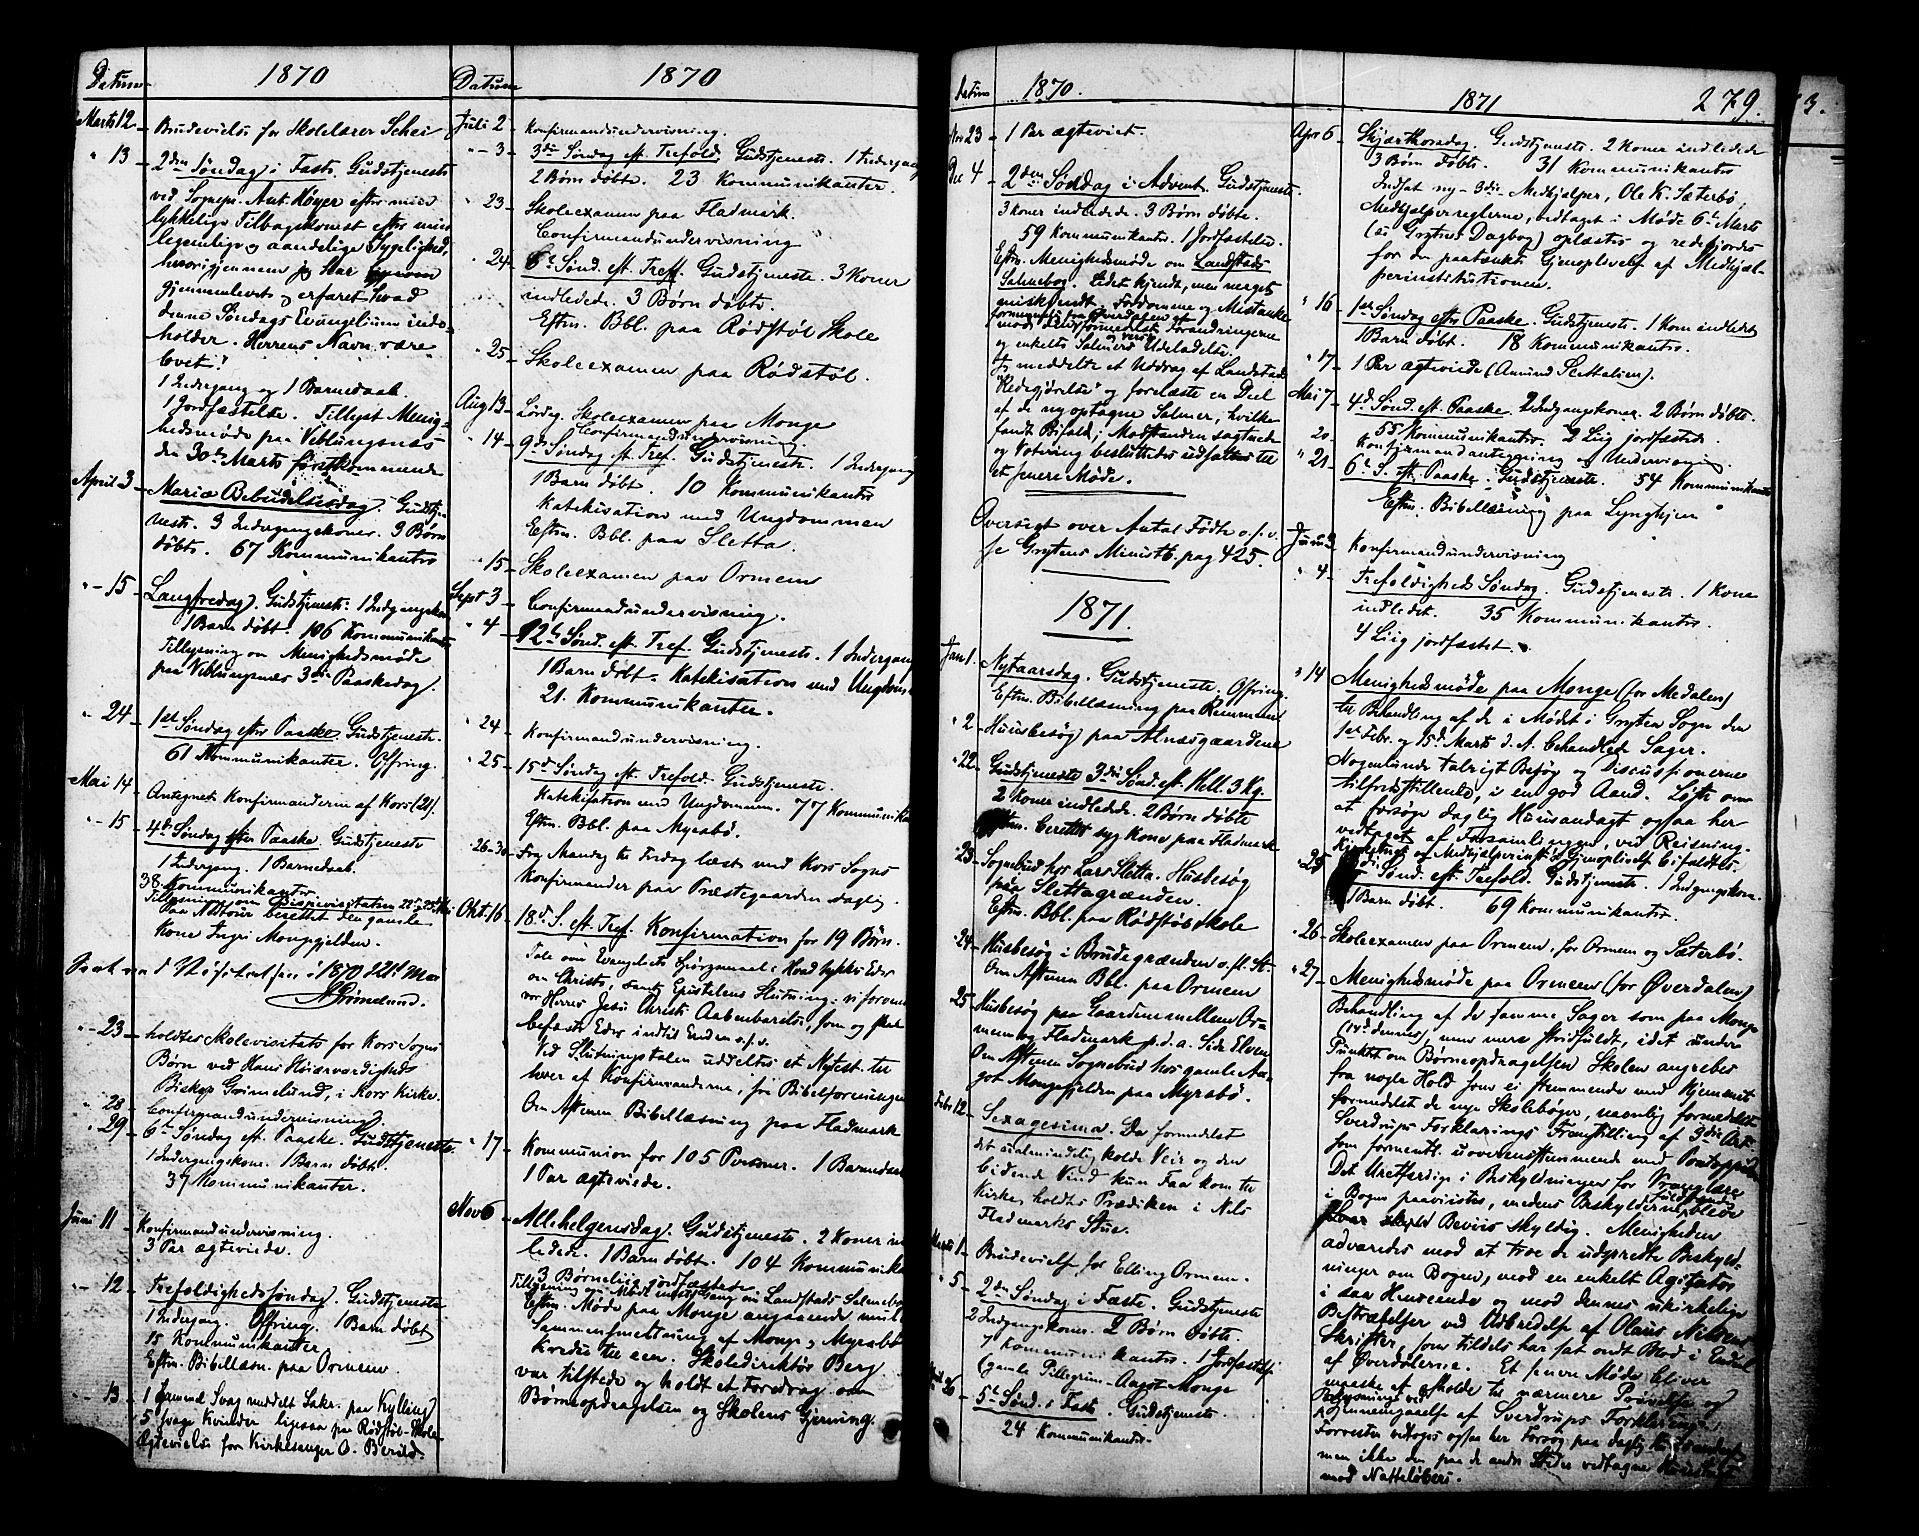 Datum
1870
Marts 12
Brudevielse for Skolelærer Schei
" 13
2den Søndag i Faste. Gudstjeneste
ved Sognepr. Ant. Høyer efter min
lykkelige Tilbagekomst efter min
legemlige og aandelige Sygelighed,
hvorigjennem jeg har
gjennemlevet og erfaret hvad
denne Søndags Evangelium inde-
holder. Herrens Navn være
lovet!
1 Indregang og 1 Barnedaab.
1 Jordfæstelse. Tillyst Menig-
hedsmøde paa Veblungsnæs
den 30te Marts førstkommende
April 3
Mariæ Bebudelsesdag. Gudstje-
neste. 3 Indregangskoner. 3 Børn
døbte. 67 Kommunikanter
" 15
Langfredag. Gudstjeneste. 1 Indgangskone
1 Barn døbt. 106 Kommunikanter
Tillysning om Menighedsmøde
paa Veblungsnæs 3die Paaskedag.
" 24
1ste Søndag efter Paaske. Gudstjeneste.
61 Kommunikanter. Offring.
Mai 14
Antegnet Konfirmanderne af Kors (21).
" 15
4de Søndag efter Paaske. Gudstjeneste
1 Indregang. 1 Barnedaab.
38 Kommunikanter.
Tillysning om Bispevisitatsen
paa berettet den gamle
Kone Ingri Mongegjelden.
1870 Mai
Grimelund.
" 23
holdtes Skolevisitats for Kors Sogns
Børn ved Hans Høiærværdighed
Biskop Grimelund, i Kors Kirke.
" 28
Confirmandundervisning.
" 29
6te Søndag eft. Paaske. Gudstjeneste
1 Indregangskone. 1 Barn døbt.
37 Kommunikanter.
Juni 11
Konfirmandundervisning.
3 Par ægteviede.
" 12
Trefoldighedssøndag. Gudstjeneste
1 Indregang. Offring. 1 Barn døbt
15 Kommunikanter
Eftm. Bibellæsn. paa Ormem.
" 13
1 Svag meddelt Sakr. paa Kylling
5 svage Kvinder ligesaa paa Rødstøl-Skole
Ægtevielse for Kirkesanger O. Berild.
Datum
1870
Juli 2
Konfirmandundervisning.
" 3
3die Søndag eft. Trefold. Gudstjeneste. 1 Indregang
2 Børn døbte. 23 Kommunikanter.
" 23
Skoleexamen paa Fladmark.
Confirmandundervisning
" 24
6te Sønd. eft. Tref. Gudstjeneste. 3 Koner
indledede. 3 Børn døbte.
Eftm. Bbl. paa Rødstøl Skole
" 25
Skoleexamen paa Rødstøl.
Aug 13
Lørdag. Skoleexamen paa Monge
Confirmandundervisning.
" 14
9de Søndag eft. Tref. Gudstjeneste. 1 Indregang
1 Barn døbt. 10 Kommunikanter
Katekisation med Ungdommen
Eftm. Bbl. paa Sletta.
" 15
Skoleexamen paa Ormem
Sept 3
Confirmandundervisning.
" 4
12te Sønd. eft. Tref. Gudstjeneste. 1 Indregang
1 Barn døbt. Katekisation med Ungdommen
21. Kommunikanter.
" 24
Konfirmandundervisning.
" 25
15de Søndag eft. Trefold. Gudstjeneste.
Katekisation med Ungdommen. 77 Kommunika
Eftm. Bbl. paa Myrabø.
" 26-30
Fra Mandag til Fredag læst med Kors Sogns
Konfirmander paa Præstegaarden daglig.
Okt. 16
18de S. eft. Tref. Konfirmation for 19 Børn.
Tale om Evangeliets Spørgsmaal: Hvad tykkes Eder
om Christo, samt Epistelens Slutning: vi forvente
vor Herres Jesu Christi Aabenbarelse, som og skal
befæste Eder indtil Enden o.s.v.
Ved Slutningstalen uddeltes et N. Test. til
hver af Konfirmanderne, fra Bibelforeningen
Om Aftenen Bibellæsning paa Fladmark
" 17
Kommunion for 105 Personer. 1 Barnedaab
1 Par ægteviede.
Nov 6
Allehelgensdag. Gudstjeneste. 2 Koner ind
ledede. 1 Barn døbt. 104 Kommunika
3 Børnelig jordfæstede
Tillysning om Møde om Landstads Salmebog
Eftm. Møde paa Monge angaaende
Sammensmeltning af Monge og Myrabø
Kredse til een. Skoledirektør Berg
var tilstede og holdt et Foredrag om
Børneopdragelsen og Skolens Gjerning.
Datum
1870.
Nov 23
1 Par ægteviet.
Dec 4
2den Søndag i Advent. Gudstjeneste.
3 Koner indledede. 3 Børn døbte.
59 Kommunikanter. 1 Jordfæstelse.
Eftm. Menighedsmøde om Landstads
Salmebog. Lidet kjendt, men meget
miskjendt, Fordomme og Mistanke
mod den formedelst Forandringerne
og enkelte Salmers Udeladelse.
Jeg meddelte et Uddrag af Landstads
"Redegjørelse" og forelæste en Deel
af de nyoptagne Salmer, hvilke
fandt Bifald, Modstanden sagtnede
og Votering besluttedes udsættes til
et senere Møde.
Oversigt over Antal Fødte o.s.v.
se Gryten Ministb. pag 425.
1871.
Jan 1.
Nytaarsdag. Gudstjeneste. Offring.
Eftm. Bibellæsning paa Remmem
" 2
Huusbesøg paa Alnæsgaardene
" 22
Gudstjeneste 3die Sønd. eft. Hell. 3 Kg.
2 Koner indledede. 2 Børn døbte
Eftm. berettet syg Kone paa Fladmark
23
Sognebud hos Lars Sletta. Husbesøg
paa Slettagrænden.
Eftm. Bbl. paa Rødstøl Skole
" 24
Husbesøg i Brudegrænden o. fl. St.
Om Aftenen Bbl. paa Ormem
25
Husbesøg paa Gaardene mellem Or-
mem og Fladmark p. d. a. Side Elven
Om Aftenen Sognebud hos gamle Aa-
got Mongegjelden paa Myrabø.
Febr 12
Sexagesima. Da formedelst
det ualmindelig kolde Veir og den
bidende Vind kun Faa kom til
Kirke, holdtes Prædiken i Nils
Fladmarks Stue.
Marts 1
Brudevielse for Elling Ormem.
" 5
2den Søndag i Faste. Gudstjeneste
2 Indgangskoner. 2 Børn døbte.
7 Kommunikanter. 1 Jordfæstelse
(gamle Pillegrim-Aagot Monge
26
5te Sønd. i Faste. Gudstjeneste.
24 Kommunikanter.
1871
279.
Apr 6
Skjærthorsdag. Gudstjeneste. 2 Koner indledede
3 Børn døbte. 31 Kommunikanter
Indsat ny 3die Medhjælper, Ole K. Sæterbø,
Medhjælperreglerne, vedtaget i Møde 6te Marts
(se Grytens Dagbog) oplæstes og redegjordes
for den paatænkte Gjenoplivelse af Medhjæl-
perinstitutionen.
" 16
1ste Søndag efter Paaske. Gudstjeneste. 1 Kone indledet
1 Barn døbt. 18 Kommunikanter.
" 17
1 Par ægteviede (Amund Slettalien).
Mai 7
4de Sønd. eft. Paaske. 2 Indgangskoner. 2 Børn døbte.
55 Kommunikanter. 2 Liig jordfæstede.
20
Konfirmandantegning og Undervisning.
" 21
6te S. eft. Paaske. Gudstjeneste. 54 Kommunikanter
Eftm. Bibellæsning paa Lyngheim
Juni 3
Konfirmandundervisning
" 4
Trefoldigheds Søndag. Gudstjeneste. 1 Kone
indledet. 35 Kommunikanter.
4 Liig jordfæstet.
" 14
Menighedsmøde paa Monge (for Medalen)
til Behandling af de i Mødet i Gryten Sogn den
1ste Febr. og 15de Marts d. A. behandlede Sager.
Nogenlunde talrigt Besøg og Discussionerne
tilfredsstillende, i en god Aand. Løfte om
at forsøge daglig Huusandagt ogsaa her
vedtaget af Forsamlingen, ved Reisning.
af Medhjælperinst. Gjenoplivelse bifaldtes.
" 25
Sønd. eft. Trefold. Gudstjeneste. 1 Indgangskone.
1 Barn døbt. 69 Kommunikanter.
26
Skoleexamen paa Ormem, for Ormem og Sæterbø.
" 27
Menighedsmøde paa Ormem (for Øverdalen)
Behandling af de samme Sager som paa Monge
(14de dennes), men mere stridfuldt, idet under
Punktet om Børneopdragelsen Skolen angrebes
fra nogle Hold
formedelst de nye Skolebøger, navnlig formedelst
Sverdrups Forklarings Fremstilling af 3die Art.
som formentl. uoverensstemmende med Pontoppidan
Det Uretfærdige i Beskyldninger for Vranglære
i Bogen paavistes, medens Beskylderne bleve
hver Beviis skyldig. Menigheden
advaredes mod at troe de udspredte Beskyld-
ninger om Bogen, mod en enkelt Agitator
i saa Henseende og mod dennes ukirkelige
Bestræbelser ved Udbredelse af Olaus Nielsens
Skrifter, som tildels har sat ondt Blod i Endel
af Øverdølerne. Et senere Møde bliver
maaske at holde til nærmere Prøvelse og
Gjennemgaaelse af Sverdrups Forklaring.
Forresten vedtoges ogsaa her Forsøg paa daglig Huusandagt
men ikke den paa de andre Steder vedtagne
mod Natteløberi.